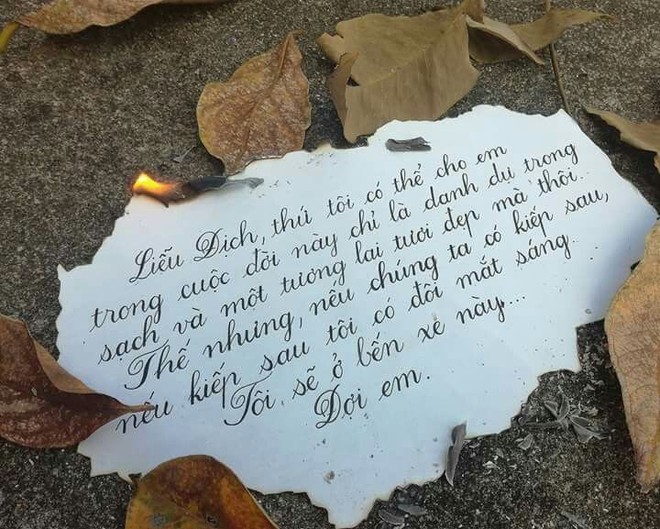 Liễu Dịch, thứ tôi có thể cho em
trong cuộc đời này chỉ là danh dự trong
sạch và một tương lai tươi đẹp mà thôi.
Thế nhưng, nếu chúng ta có kiếp sau,
nếu kiếp sau tôi có đôi mắt sáng.
Tôi sẽ ở bến xe này...
Đợi em.